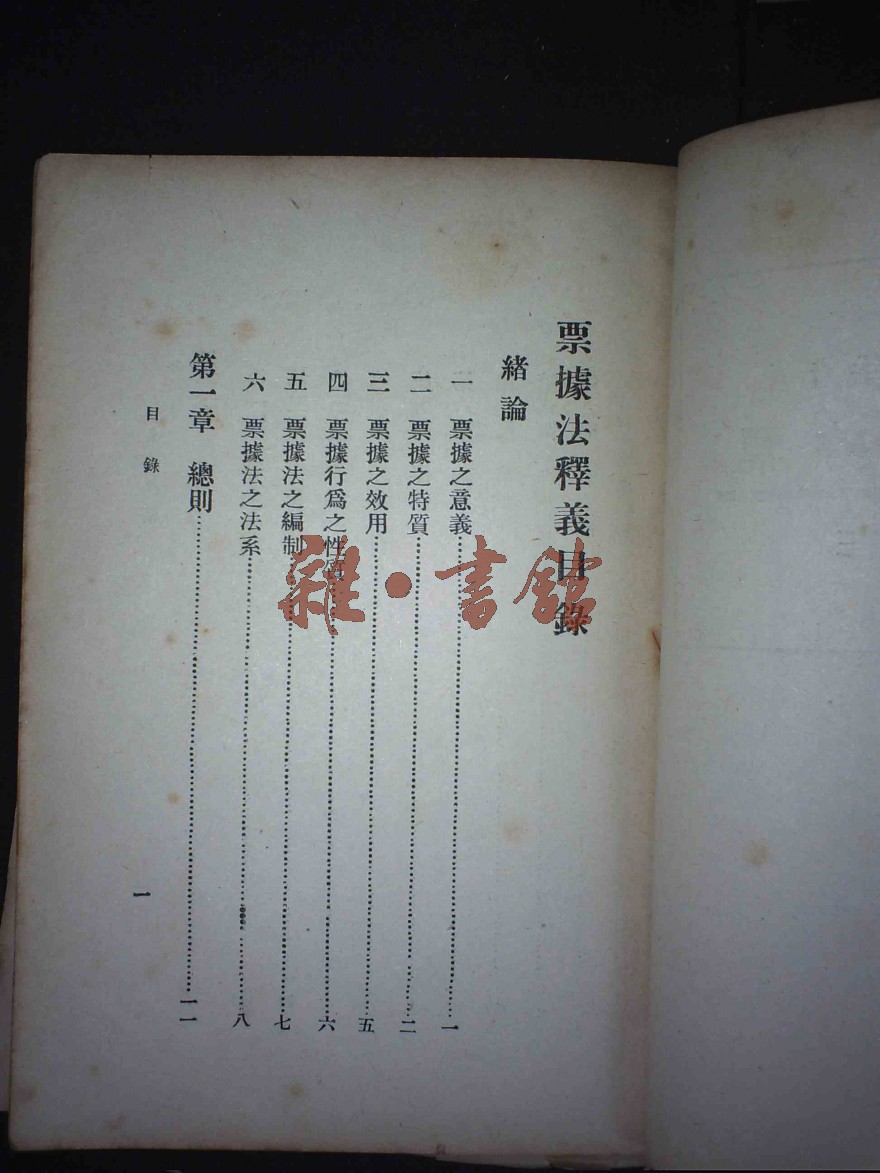 票據法釋義目錄
緒論
一 票據之意義……一
二 票據之特質……二
三 票據之效用……五
四 票據行爲之性質……六
五 票據法之編制……七
六 票據法之法系……八
第一章 總則……一一
目錄
一
雜·書館